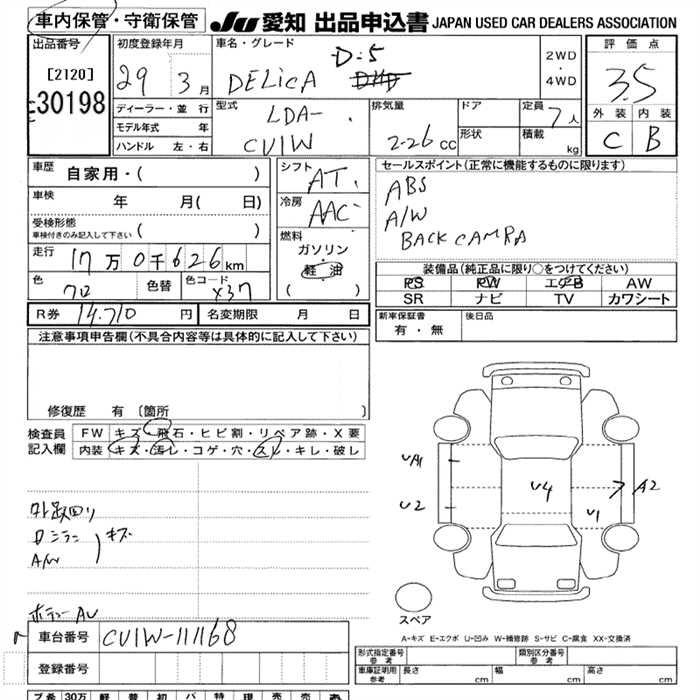 車内保管・守衛保管 JU 愛知 出品申込書 JAPAN USED CAR DEALERS ASSOCIATION
出品番号 初度登録年月 車名・グレード 評価点
[2120] 29 3月 DELICA D:5 2WD・4WD 3.5
30198 ディーラー・並行 型式 LDA- 排気量 ドア 定員 7人 外装 内装
モデル年式 年 CV1W 2.26 CC 形状 積載 kg C B
ハンドル 左・右
車歴 自家用・( ) シフト AT セールスポイント(正常に機能するものに限ります)
車検 年 月( 日) 冷房 AAC ABS
受検形態 A/W
車検付きのみ記入して下さい ( ) 燃料 BACK CAMRA
走行 17万0千626km ガソリン
色 クロ 色替 色コード X37 軽油 装備品(純正品に限り○をつけてください)
( ) PS PW エアB AW
SR ナビ TV カワシート
R券 14.710円 名変期限 月 日 新車保証書 有・無 後日品
注意事項申告欄(不具合内容等は具体的に記入して下さい)
修復歴 有 〔箇所 〕
検査員 FW キズ・飛石・ヒビ割・リペア跡・X要
記入欄 内装 キズ・汚レ・コゲ・穴・スレ・キレ・破レ
UA1 U4 A2
U2 U1
外装回り
キズ
A/W
スペア
A-キズ E-エクボ U-凹み W-補修跡 S-サビ C-腐食 XX-交換済
車台番号 CV1W-111168
型式指定番号 参考 類別区分番号 参考
登録番号 車庫証明用 参考 長さ cm 幅 cm 高さ cm